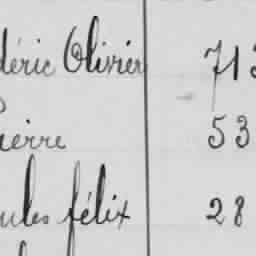 déric Olivier 713
ierre 53
ules félix 28